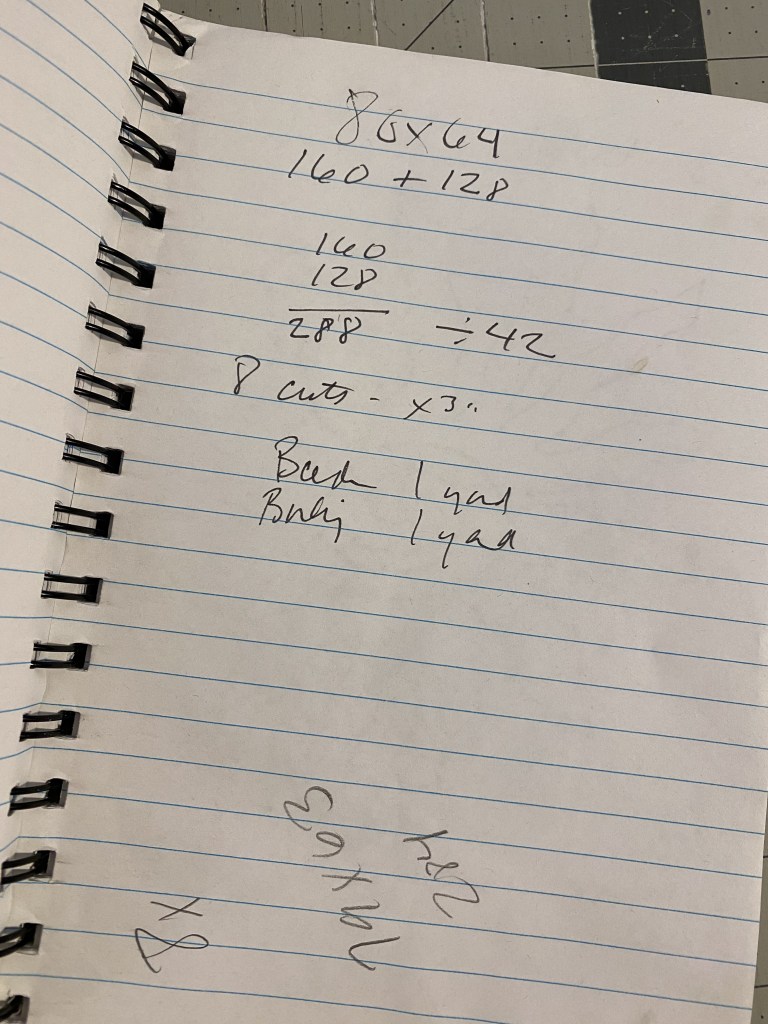 80x64
160 + 128
160
128
288 ÷ 42
8 cuts - x3"
Back 1 yard
Binding 1 yard
8x